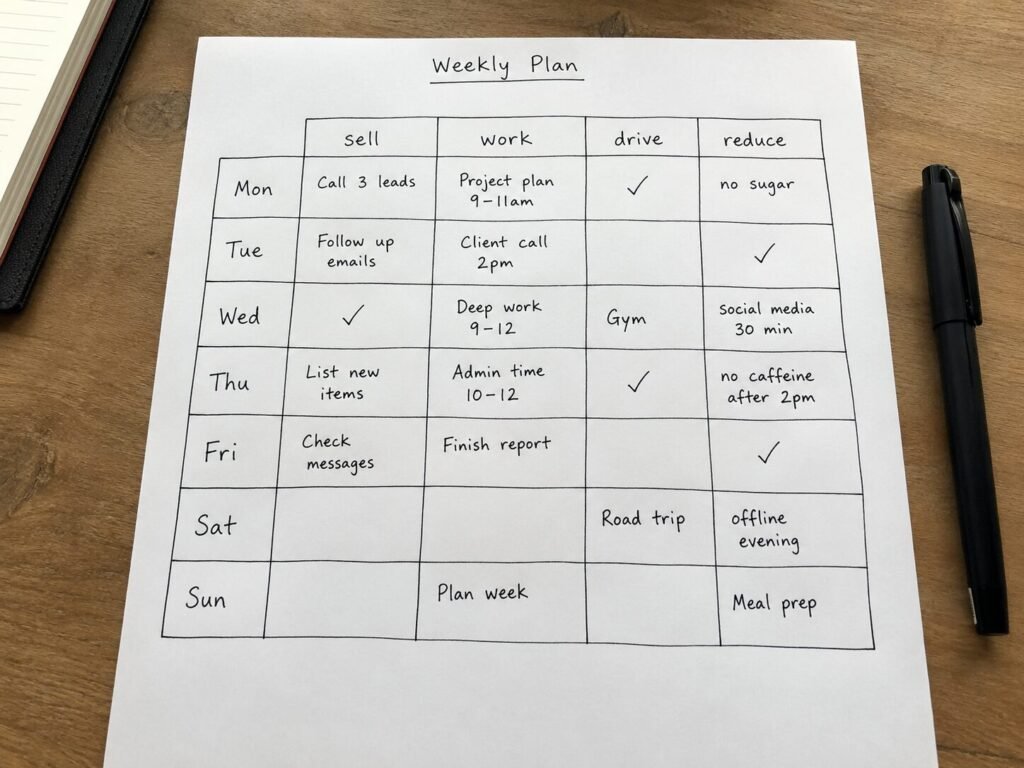 Weekly Plan
sell work drive reduce
Mon Call 3 leads Project plan ✓ no sugar
9-11am
Tue Follow up Client call ✓
emails 2pm
Wed ✓ Deep work Gym social media
9-12 30 min
Thu List new Admin time ✓ no caffeine
items 10-12 after 2pm
Fri Check Finish report ✓
messages
Sat Road trip offline
evening
Sun Plan week Meal prep